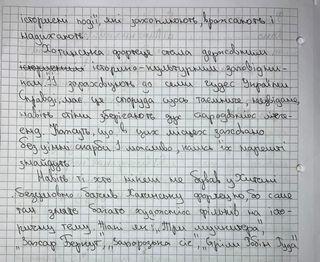 історичні події, які захоплюють, вражають і
надихають.
Хотинська фортеця стала державним
історико-культурним заповідни-
ком. Її зараховують до семи чудес України
Справді, має ця споруда щось таємниче, незвідане,
навіть стіни зберігають дух стародавніх леге-
енд. Кажуть, що в цих місцях заховано
безцінні скарби і, можливо, колись їх нарешті
знайдуть.
Навіть ті, хто ніколи не бував у Хотині
безумовно бачив Хотинську фортецю, бо саме
там знято багато художніх фільмів на іс
ричну тему. Такі як: „Три мушкетери",
„Захар Беркут", „Запорозька січ", „Стріли Робін Гуда"